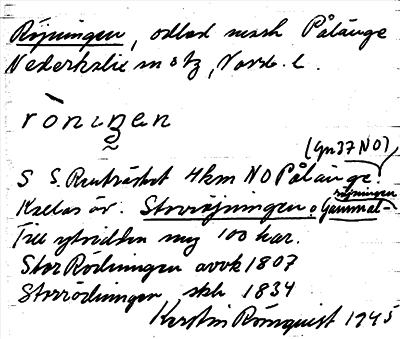 Röjningen, odlad mark Pålänge
Nederkalix sn o tg, Norrb. l.
rònıŋen
(Gn 37 NO)
S S. Renträsket 4 km NO Pålänge.
Kallas äv. Storröjningen o. Gammal-
röjningen
Till ytvidden 100 har.
Stor Rödningen avvk 1807
Storrödningen, skh 1834
Kerstin Rönquist 1945